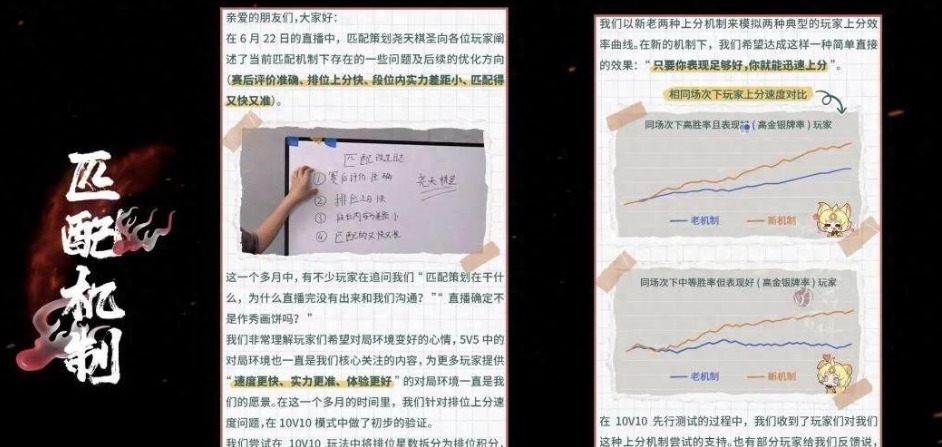 匹配机制
亲爱的朋友们，大家好：
在 6 月 22 日的直播中，匹配策划尧天棋圣向各位玩家阐
述了当前匹配机制下存在的一些问题及后续的优化方向
（赛后评价准确、排位上分快、段位内实力差距小、匹配得
又快又准）。
①赛后评价准确
②排位上分快
③段位内实力差距小
④匹配的又快又准
尧天棋圣
这一个多月中，有不少玩家在追问我们“匹配策划在干什
么，为什么直播完没有出来和我们沟通？”“直播确定不
是作秀画饼吗？”
我们非常理解玩家们希望对局环境变好的心情，5V5 中的
对局环境也一直是我们核心关注的内容，为更多玩家提供
“速度更快、实力更准、体验更好”的对局环境一直是我
们的愿景。在这一个多月的时间里，我们针对排位上分速
度问题，在 10V10 模式中做了初步的验证。
我们尝试在 10V10 玩法中将排位星数拆分为排位积分，
我们以新老两种上分机制来模拟两种典型的玩家上分效
率曲线。在新的机制下，我们希望达成这样一种简单直接
的效果：“只要你表现足够好，你就能迅速上分”。
相同场次下玩家上分速度对比
同场次下高胜率且表现好（高金银牌率）玩家
老机制 新机制
同场次下中等胜率但表现好（高金银牌率）玩家
老机制 新机制
在 10V10 先行测试的过程中，我们收到了玩家们对我们
这种上分机制尝试的支持。也有部分玩家给我们反馈说，